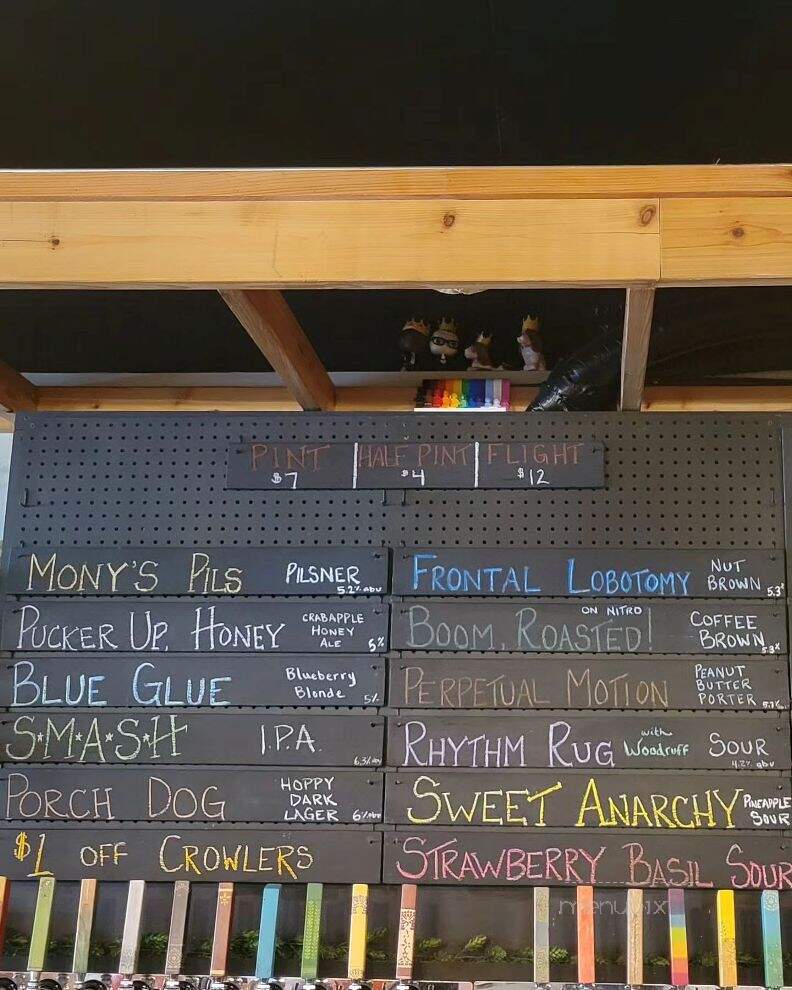 PINT HALF PINT FLIGHT
$7 $4 $12
MONY'S PILS PILSNER
5.2% abv
PUCKER UP, HONEY CRABAPPLE
HONEY
ALE 5%
BLUE GLUE Blueberry
Blonde 5%
S*M*A*S*H I.P.A.
6.3% abv
PORCH DOG HOPPY
DARK
LAGER 6% abv
$1 OFF CROWLERS
FRONTAL LOBOTOMY NUT
BROWN 5.3%
BOOM, ROASTED! ON NITRO
COFFEE
BROWN 5.3%
PERPETUAL MOTION PEANUT
BUTTER
PORTER
RHYTHM RUG with
Woodruff SOUR
4.2% abv
SWEET ANARCHY PINEAPPLE
SOUR
STRAWBERRY BASIL SOUR